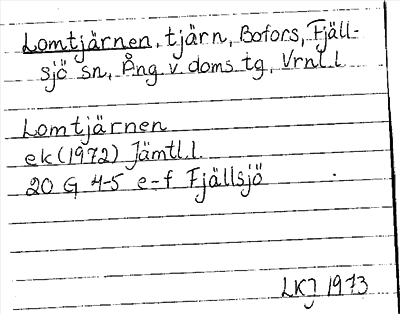 Lomtjärnen, tjärn, Bofors, Fjäll-
sjö sn, Ång. v. doms tg, Vrnl. l
Lomtjärnen
ek (1972) Jämtl. l.
20 G 4-5 e-f Fjällsjö
LKJ 1973